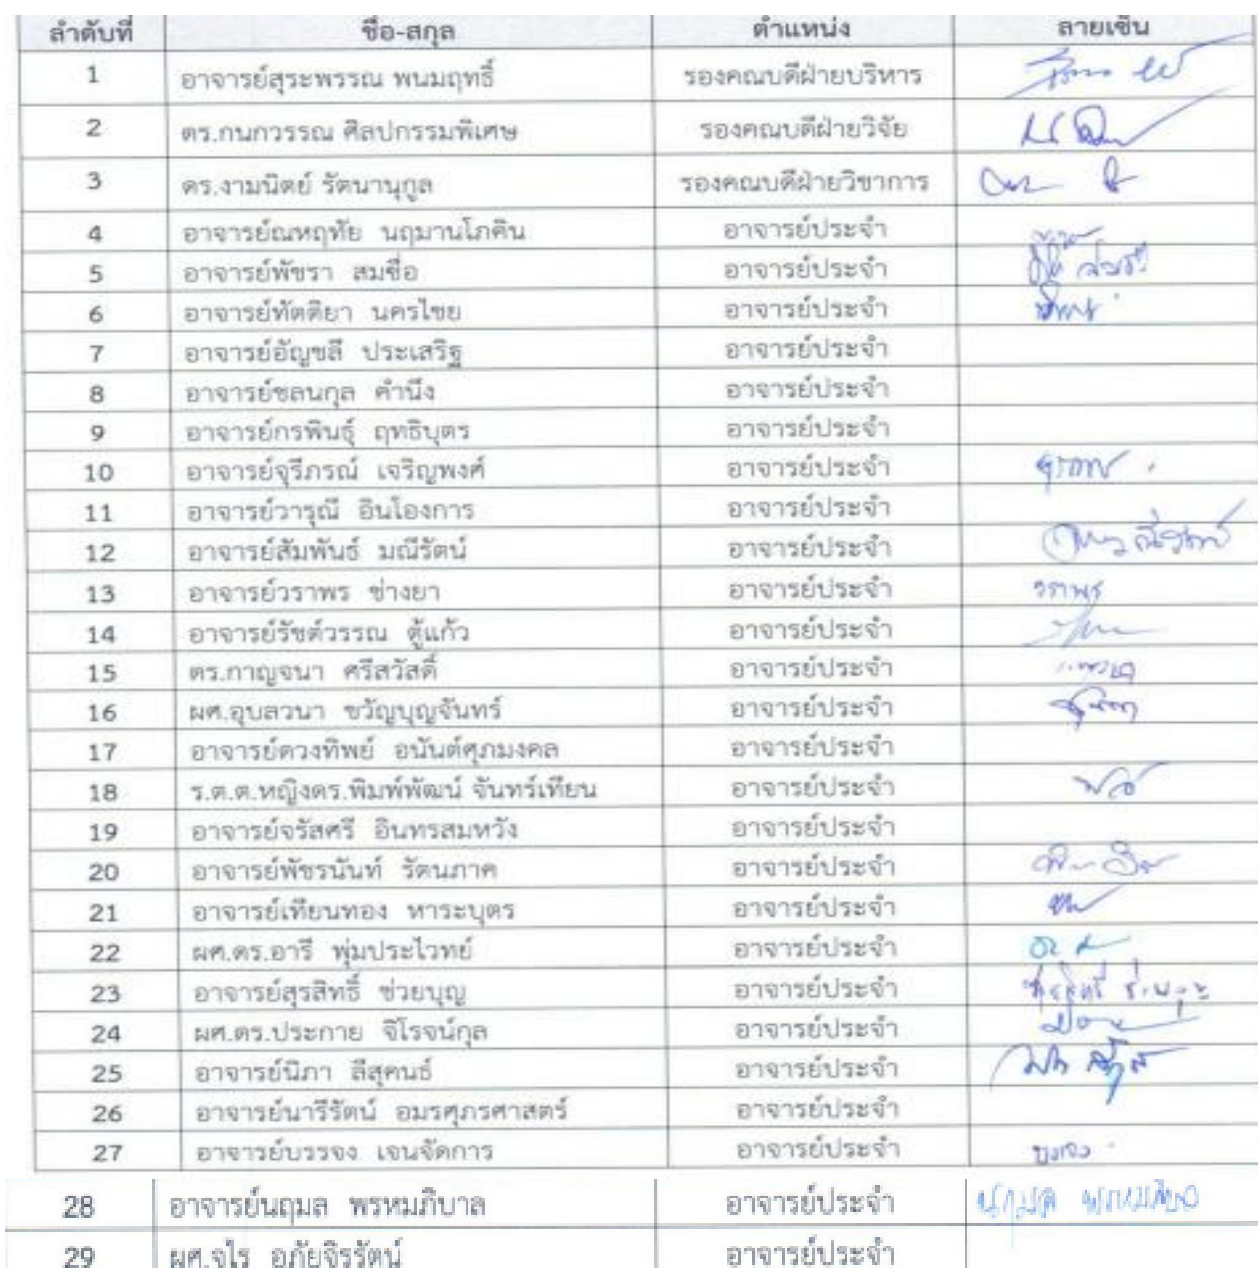 ลำดับที่ ชื่อ-สกุล ตำแหน่ง ลายเซ็น
1 อาจารย์สุระพรรณ พนมฤทธิ์ รองคณบดีฝ่ายบริหาร
2 ดร.กนกวรรณ ศิลปกรรมพิเศษ รองคณบดีฝ่ายวิจัย
3 ดร.งามนิตย์ รัตนานุกูล รองคณบดีฝ่ายวิชาการ
4 อาจารย์ณหฤทัย นฤมานโภคิน อาจารย์ประจำ
5 อาจารย์พัชรา สมชื่อ อาจารย์ประจำ
6 อาจารย์ทัตติยา นครไชย อาจารย์ประจำ
7 อาจารย์อัญชลี ประเสริฐ อาจารย์ประจำ
8 อาจารย์ชลนกุล คำนึง อาจารย์ประจำ
9 อาจารย์กรพินธุ์ ฤทธิบุตร อาจารย์ประจำ
10 อาจารย์จุรีภรณ์ เจริญพงศ์ อาจารย์ประจำ
11 อาจารย์วารุณี อินโองการ อาจารย์ประจำ
12 อาจารย์สัมพันธ์ มณีรัตน์ อาจารย์ประจำ มณีรัตน์
13 อาจารย์วราพร ช่างยา อาจารย์ประจำ วราพร
14 อาจารย์รัชต์วรรณ ตู้แก้ว อาจารย์ประจำ
15 ดร.กาญจนา ศรีสวัสดิ์ อาจารย์ประจำ
16 ผศ.อุบลวนา ขวัญบุญจันทร์ อาจารย์ประจำ
17 อาจารย์ดวงทิพย์ อนันต์ศุภมงคล อาจารย์ประจำ
18 ร.ต.ต.หญิงดร.พิมพ์พัฒน์ จันทร์เทียน อาจารย์ประจำ
19 อาจารย์จรัสศรี อินทรสมหวัง อาจารย์ประจำ
20 อาจารย์พัชรนันท์ รัตนภาค อาจารย์ประจำ
21 อาจารย์เทียนทอง หาระบุตร อาจารย์ประจำ
22 ผศ.ดร.อารี พุ่มประไวทย์ อาจารย์ประจำ
23 อาจารย์สุรสิทธิ์ ช่วยบุญ อาจารย์ประจำ
24 ผศ.ดร.ประกาย จิโรจน์กุล อาจารย์ประจำ
25 อาจารย์นิภา ลีสุคนธ์ อาจารย์ประจำ
26 อาจารย์นารีรัตน์ อมรศุภรศาสตร์ อาจารย์ประจำ
27 อาจารย์บรรจง เจนจัดการ อาจารย์ประจำ บรรจง
28 อาจารย์นฤมล พรหมภิบาล อาจารย์ประจำ นฤมล พรหมภิบาล
29 ผศ.จุไร อภัยจิรรัตน์ อาจารย์ประจำ